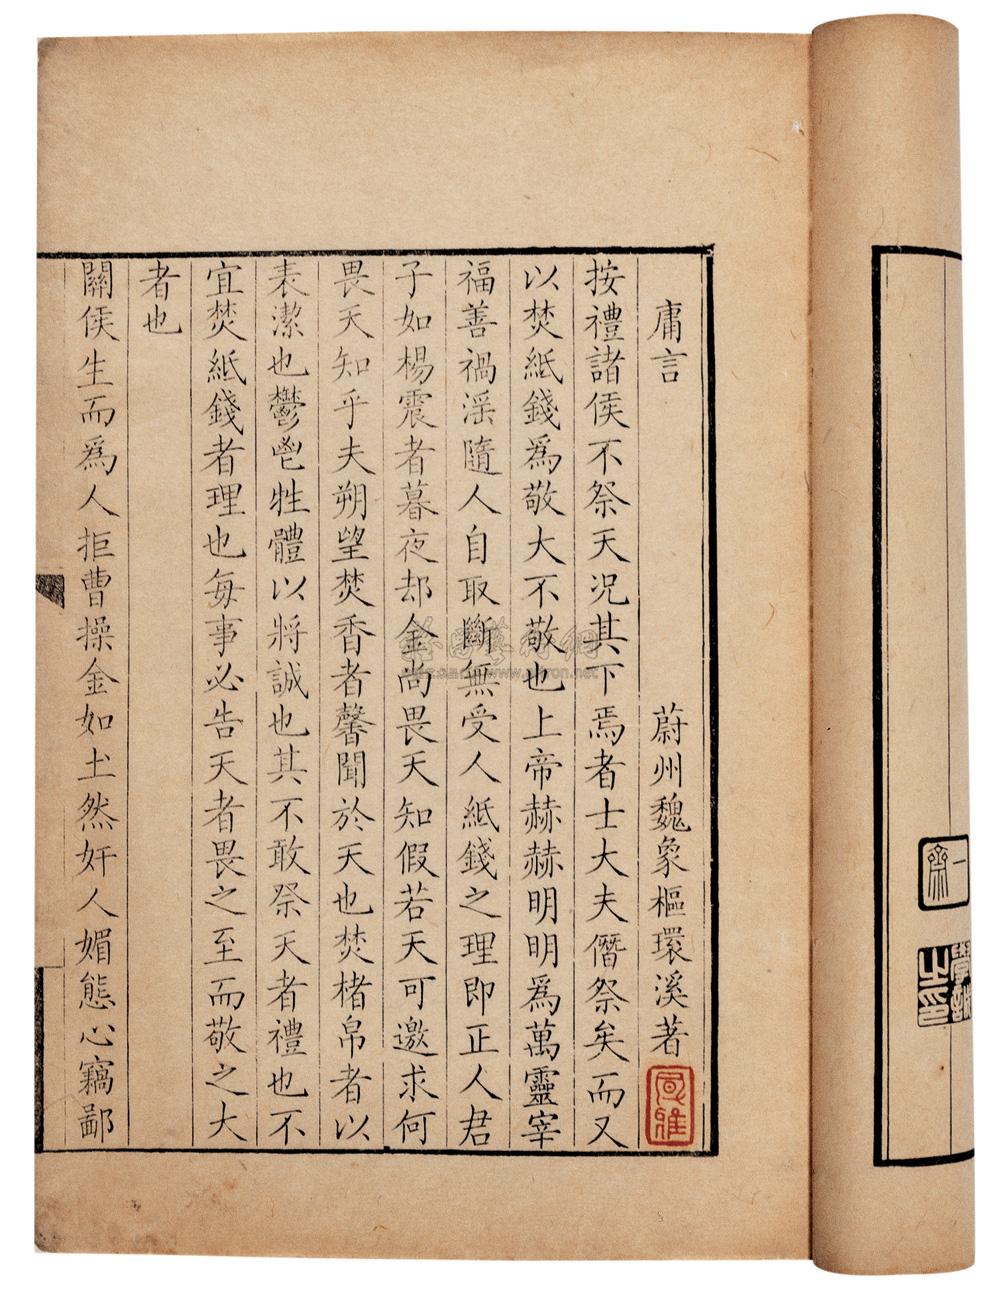 庸言　　蔚州魏象樞環溪著
按禮諸侯不祭天况其下焉者士大夫僭祭矣而又
以焚紙錢爲敬大不敬也上帝赫赫明明爲萬靈宰
福善禍淫隨人自取斷無受人紙錢之理即正人君
子如楊震者暮夜却金尚畏天知假若天可邀求何
畏天知乎夫朔望焚香者馨聞於天也焚楮帛者以
表潔也鬱鬯牲醴以將誠也其不敢祭天者禮也不
宜焚紙錢者理也每事必告天者畏之至而敬之大
者也
關侯生而爲人拒曹操金如土然奸人媚態心竊鄙
一齋
之印
www.artron.net